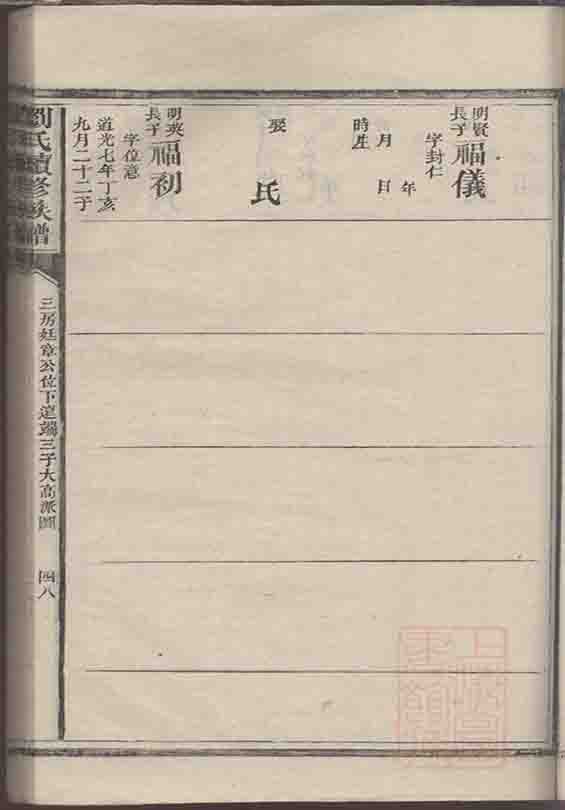 明賢
長子
福儀
字封仁
年
月 日
時生
張
氏
明爽
長子
福初
字位意
道光七年丁亥
九月二十二子
劉氏續修族譜
三房廷章公位下這端三子大高派圖
四八